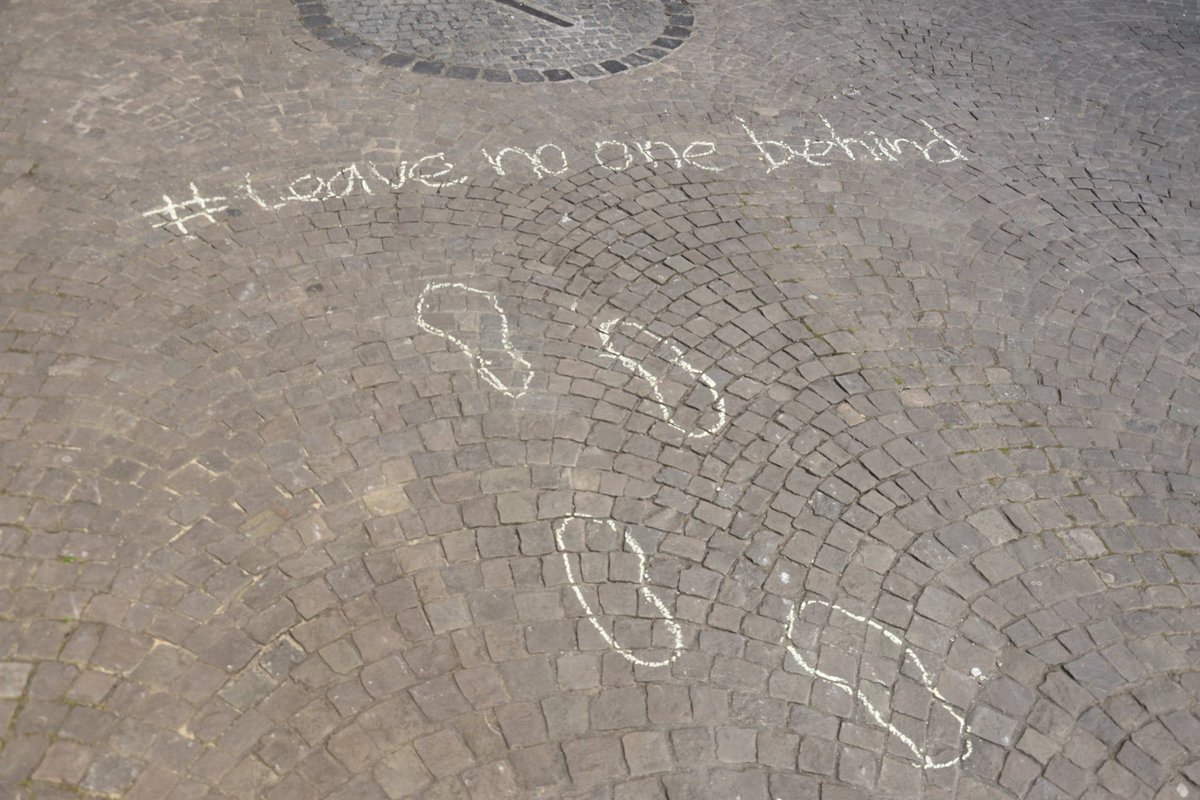 #Leave no one behind